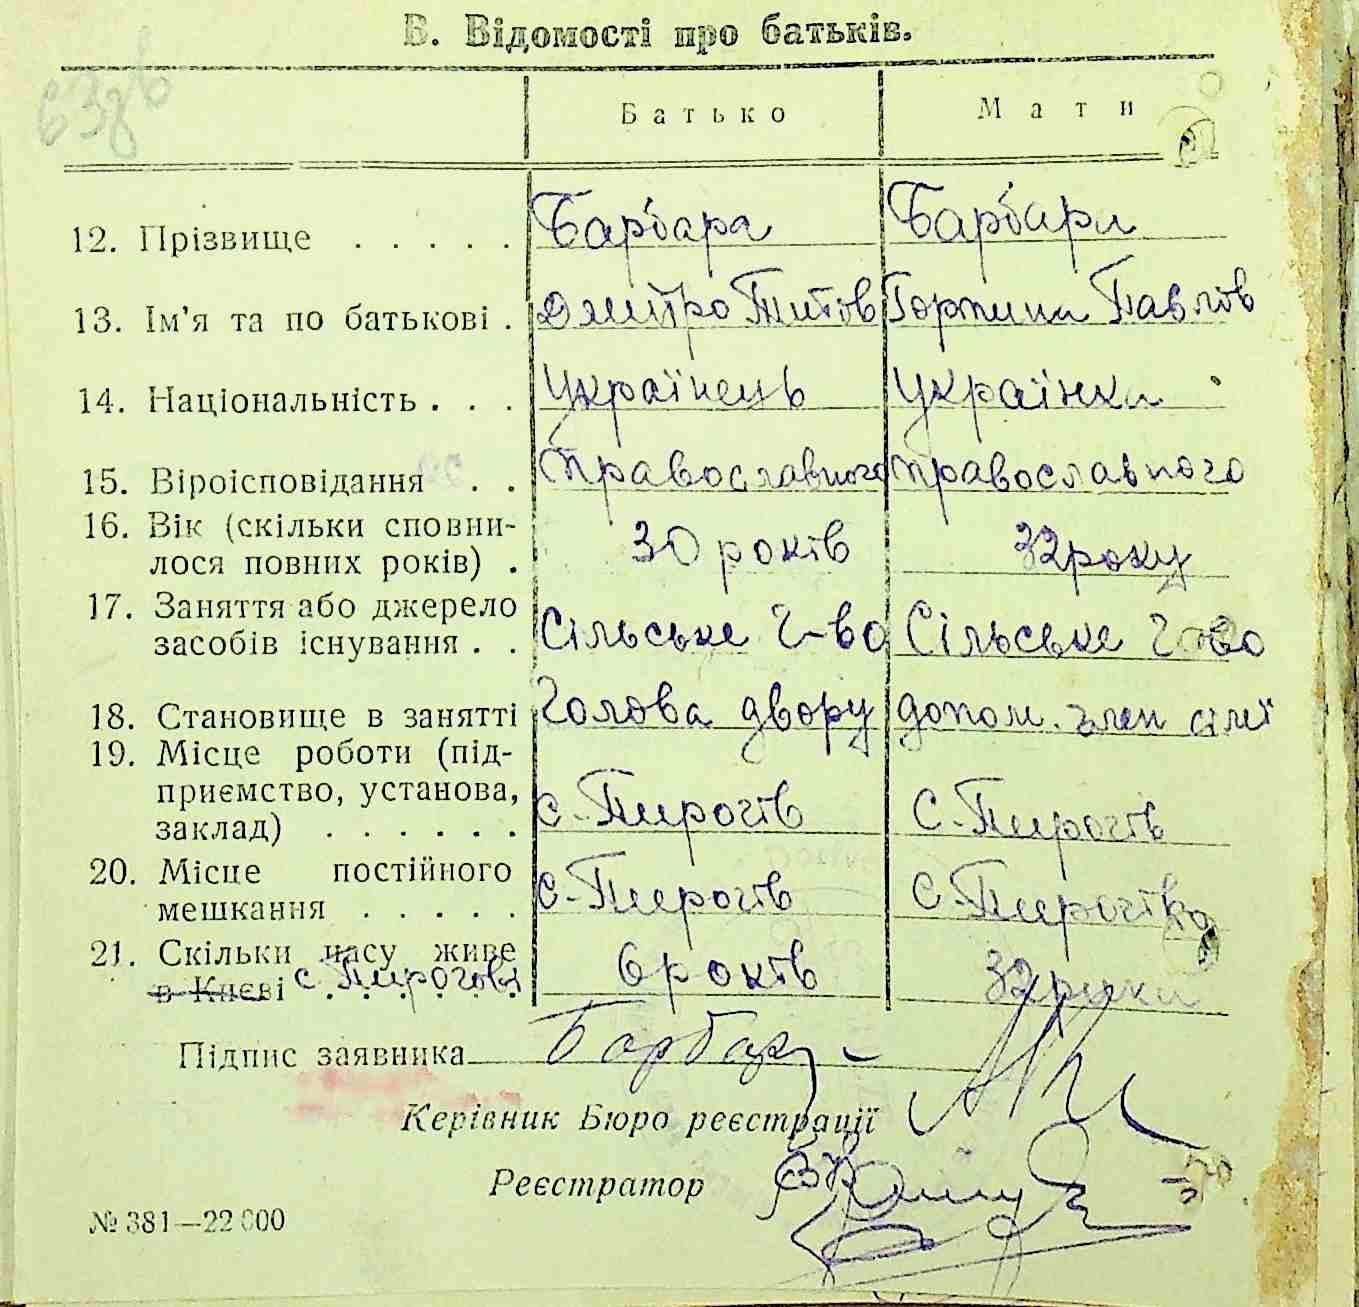 В. Відомості про батьків.
Батько Мати
12. Прізвище . . . . . Барбара Барбара
13. Ім'я та по батькові . Дмитро Титов Горпина Павлів
14. Національність . . . Українець Українка
15. Віроісповідання . . Православного православного
16. Вік (скільки сповни-
лося повних років) . 30 років 32 року
17. Заняття або джерело
засобів існування . . Сільське г-во Сільське г-во
18. Становище в занятті Голова двору допом. член сімї
19. Місце роботи (під-
приємство, установа,
заклад) . . . . . . с. Пирогів с. Пирогів
20. Місце постійного
мешкання . . . . . с. Пирогів с. Пирогів
21. Скільки часу живе
в Києві с. Пирогові 6 років 32 роки
Підпис заявника Барбара
Керівник Бюро реєстрації
Реєстратор
№ 381—22 000